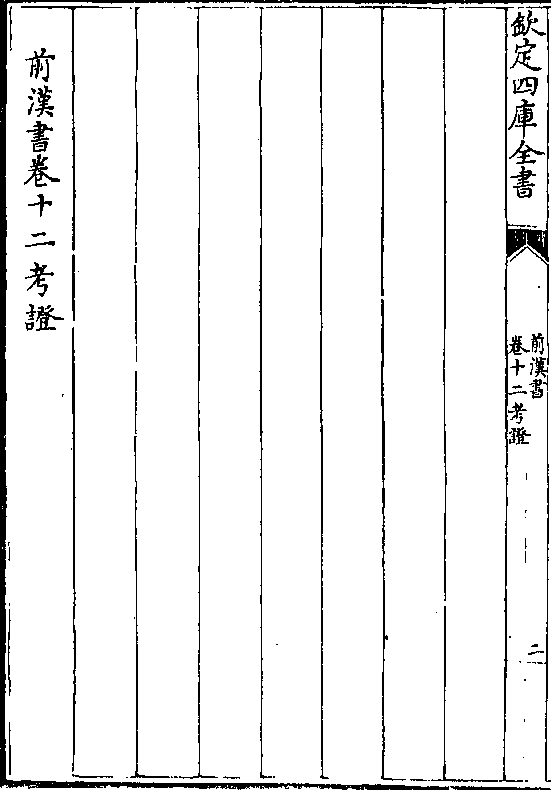 欽定四庫全書
前漢書
卷十二考證
二
前漢書卷十二考證